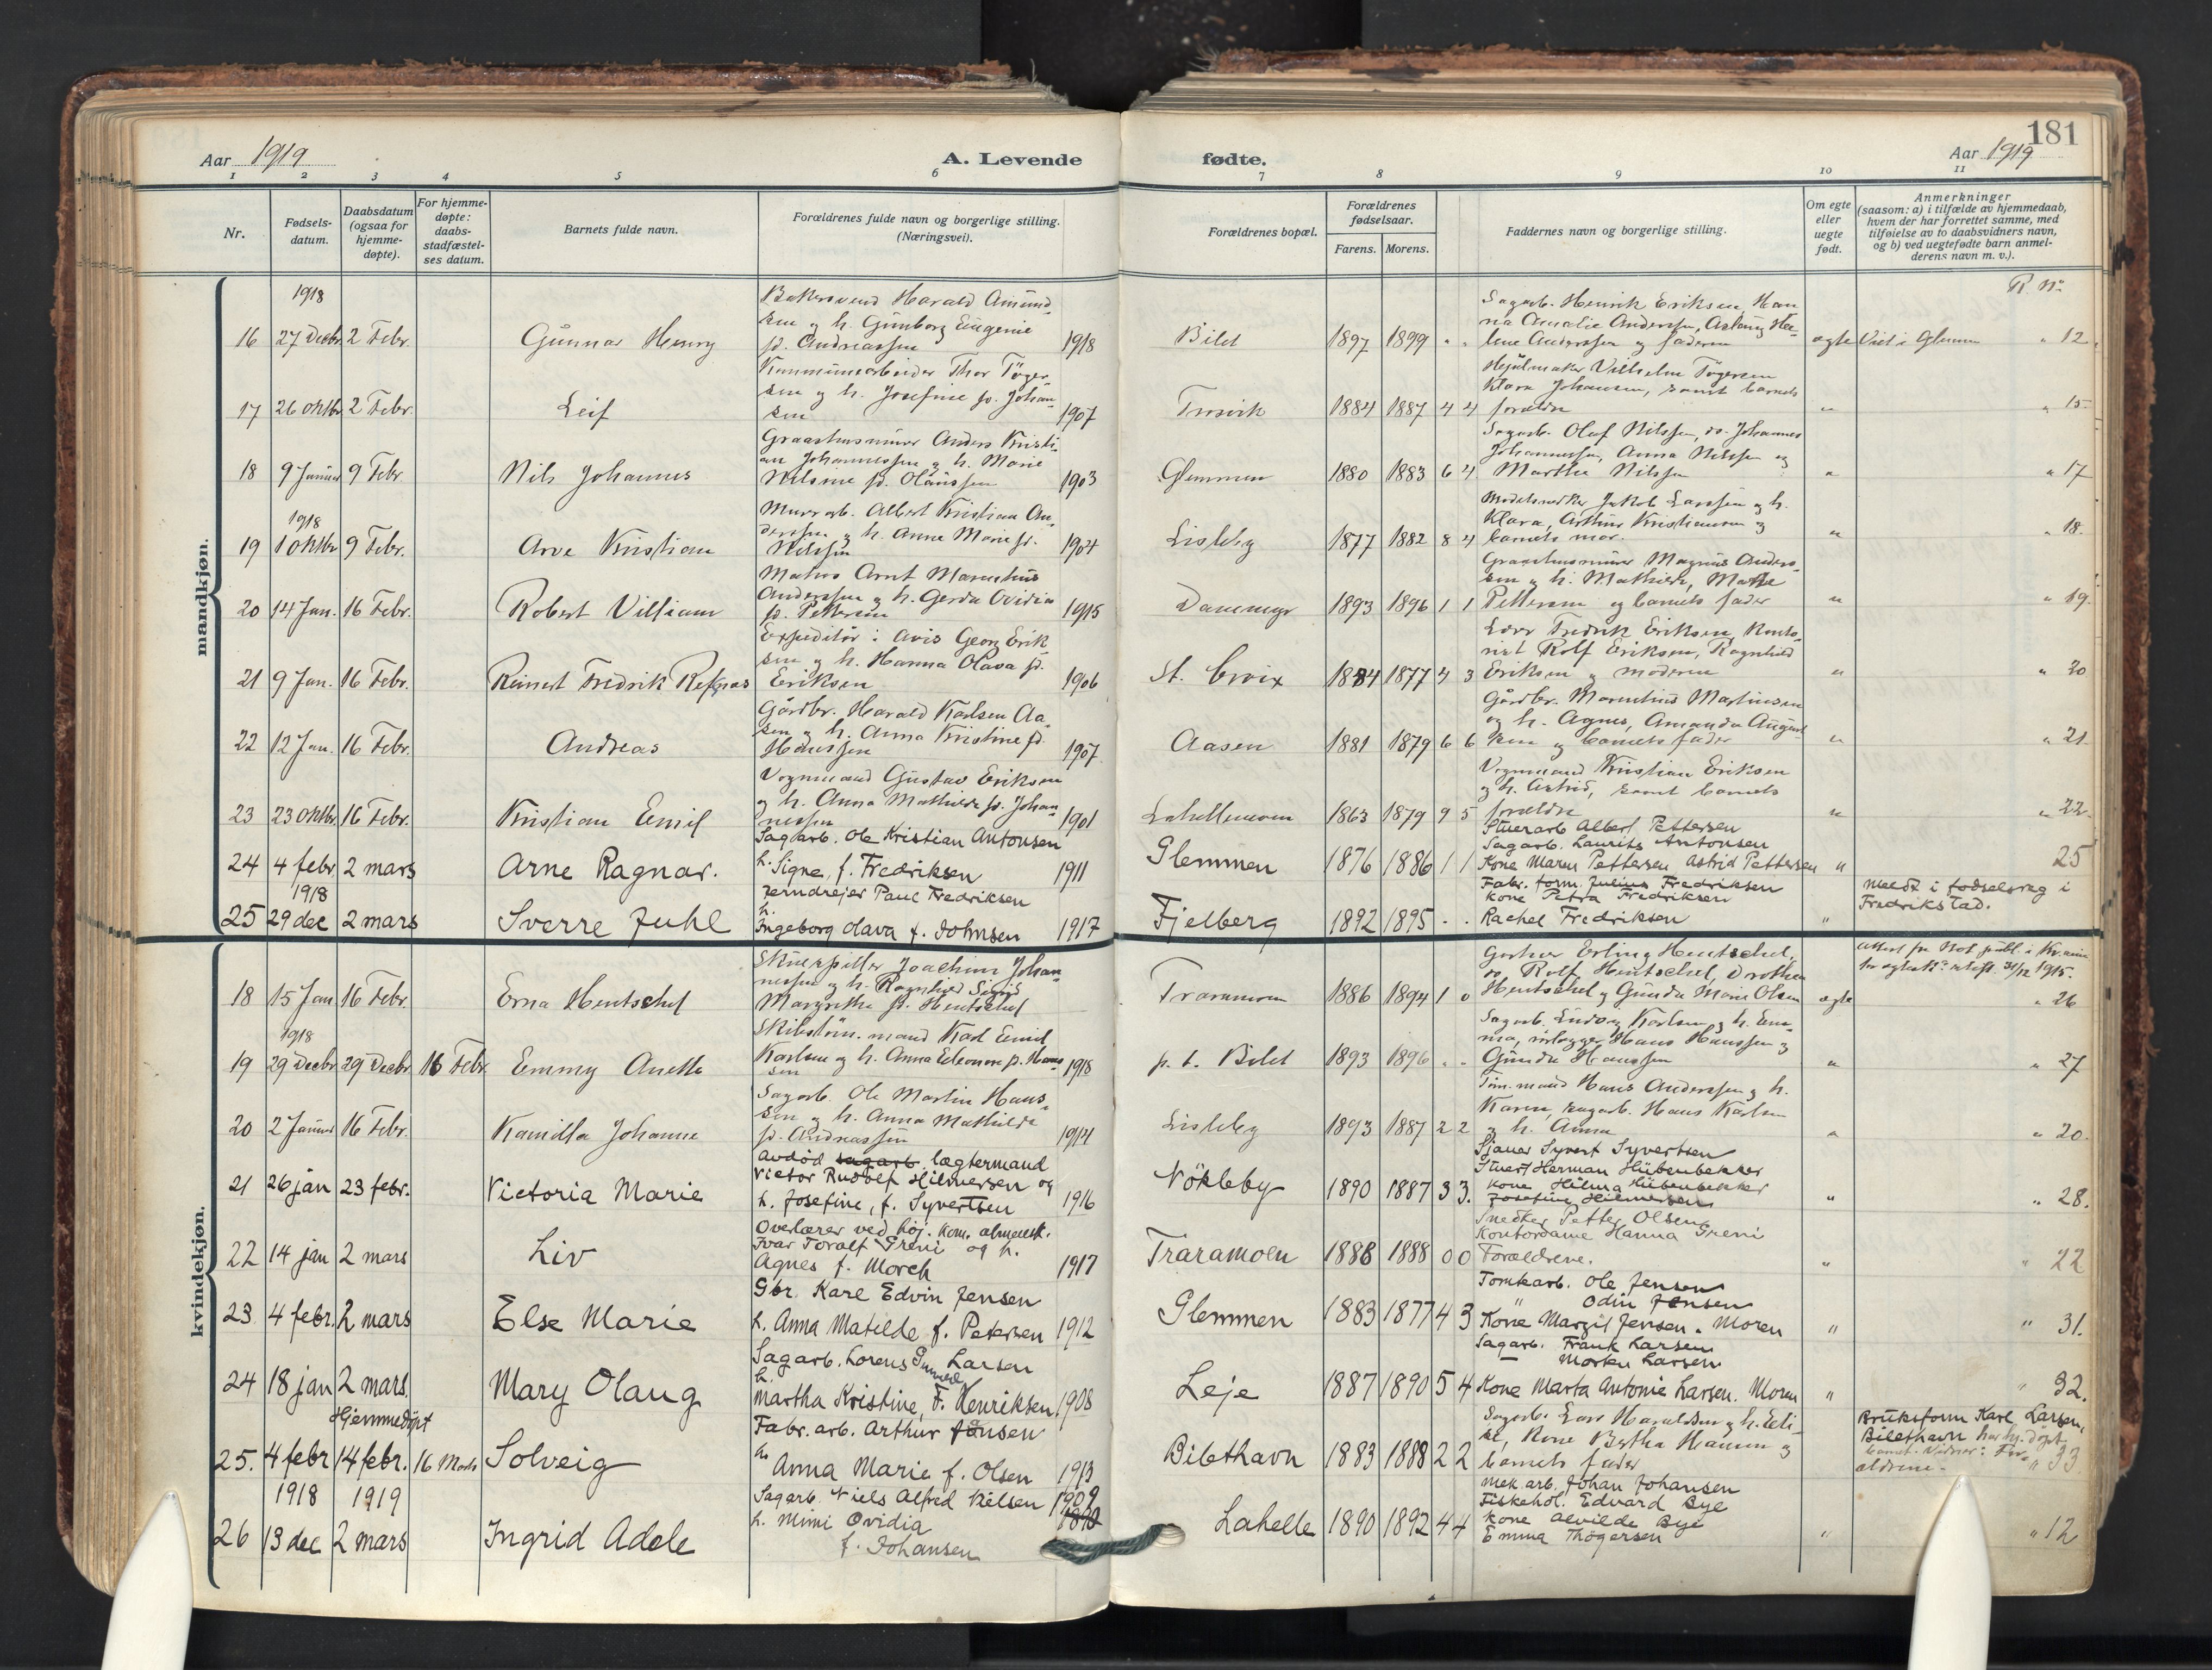 181
Aar 1919
A. Levende
fødte.
Aar 1919
1 2 3 4 5 6 7 8 9 10 11
Nr.
Fødsels-
datum.
Daabsdatum
(ogsaa for
hjemme-
døpte).
For hjemme-
døpte:
daabs-
stadfæstel-
ses datum.
Barnets fulde navn.
Forældrenes fulde navn og borgerlige stilling.
(Næringsvei).
Forældrenes bopæl.
Forældrenes
fødselsaar.
Farens. Morens.
Faddernes navn og borgerlige stilling.
Om egte
eller
uegte
født.
Anmerkninger
(saasom: a) i tilfælde av hjemmedaab,
hvem der har forrettet samme, med
tilføielse av to daabsvidners navn,
og b) ved uegtefødte barn anmel-
derens navn m. v.).
mandkjøn.
R. Nr.
1918
16 27 Decbr. 2 Febr. Gunnar Henry
Bakersvend Harald Amund-
sen og h. Gunborg Eugenie
f. Andreassen 1918
Bilet 1897 1899 " "
Sagarb. Henrik Eriksen, Han
na Amalie Andersen, Aslaug He-
lene Anderssen og faderen
egte Viet i Glemmen " 12.
17 26 oktbr. 2 Febr. Leif
Kommunearbeider Thor Tøger
sen og h. Josefine f. Johan
sen 1907
Trosvik 1884 1887 4 4
Hjulmaker Vilhelm Tøgersen
Klara Johansen, samt barnets
forældre
" " 15
18 9 Januar 9 Febr. Nils Johannes
Graastensminer Anders Kristi-
an Johannessen og h. Marie
Nilsine f. Olaussen 1903
Glemmen 1880 1883 6 4
Sagarb. Oluf Nilssen, do. Johannes
Johannessen, Anna Nilssen og
Marthe Nilssen
" " 17
1918
19 1 Oktbr 9 Febr. Arve Kristian
Murerarb. Albert Kristian An-
derssen og h. Anne Marie f.
Nilssen 1904
Lisleby 1877 1882 8 4
Modelsnedker Jakob Larssen og h.
Klara, Arthur Kristiansen og
barnets mor.
" " 18.
20 14 Jan. 16 Febr. Robert Villiam
Matros Arnt Marenthius
Anderssen og h. Gerda Ovidia
f. Pettersen 1915
Dammyr 1893 1896 1 1
Graastensminer Magnus Anders-
sen og h. Mathilde, Marthe
Pettersen og barnets fader
" " 19.
21 9 Jan. 16 Febr. Reinert Fredrik Refsnas
Expeditør i Avis Georg Erik
sen og h. Hanna Olava f.
Eriksen 1906
St. Croix 1884 1877 4 3
Lærer Fredrik Eriksen, Konto-
rist Rolf Eriksen, Ragnhild
Eriksen og moderen
" " 20
22 12 Jan. 16 Febr. Andreas
Gårdbr. Harald Karlsen Aa-
sen og h. Anna Kristine f.
Hanssen 1907.
Aasen 1881 1879 6 6
Gårdbr. Marenthius Martinsen
og h. Agnes, Amanda August-
sen og barnets fader
" " 21.
23 23 Oktbr. 16 Febr. Kristian Emil
Vognmand Gustav Eriksen
og h. Anna Mathilde f. Johan
nessen 1901
Lahellemoen 1863 1879 9 5
Vognmand Kristian Eriksen
og h. Astrid, samt barnets
forældre
" " 22.
24 4 febr. 2 mars Arne Ragnar.
Sagarb. Ole Kristian Antonsen
h. Signe, f. Fredriksen 1911
Glemmen 1876 1886 1 1
Stuerarb Albert Pettersen
Sagarb. Laurits Antonsen
Kone Maren Pettersen Astrid Pettersen
" 25
1918
25 29 dec 2 mars Sverre Juhl
Jerndreier Paul Fredriksen
h.
Ingeborg Olava f. Johnsen 1917
Fjelberg 1892 1895 - .
Fabr. form. Julius Fredriksen
Kone Petra Fredriksen
Rachel Fredriksen
"
Meldt i fødselsreg i
Fredrikstad.
kvindekjøn.
18 15 Jan 16 Febr. Erna Hentschel
Skuespiller Joachim Johan
nessen og h. Ragnhild Sigrid
Margrethe f. Hentschel
Traramoen 1886 1894 1 0
Gartner Erling Hentschel,
do. Rolf Hentschel, Dorothea
Hentschel og Gunda Marie Olsen
egte
31/12 1915.
" 26
1918
19 29 Decbr 29 Decbr. 16 Febr. Emmy Anette
Skibstøm. mand Karl Emil
Karlsen og h. Anna Eleonore f. Hans
sen 1918
p. t. Bilet 1893 1896 . .
Sagarb. Ludvig Karlsen og h. Em-
ma, inlogger Hans Hanssen og
Gunda Hanssen
" " 27
20 2 Januar 16 Febr. Kamilla Johanne
Sagarb. Ole Martin Hans-
sen og h. Anna Mathilde
f. Andreassen 1914
Lisleby 1893 1887 2 2
Tøm. mand Hans Anderssen og h.
Karen, sagarb. Hans Karlsen
og h. Anna
" " 20.
21 26 jan 23 febr. Victoria Marie
Avdød sagarb. lægtermand
Victor Rudolf Hilmersen og
h. Josefine, f. Syvertsen 1916
Nökleby 1890 1887 3 3.
Sjauer Syvert Syvertsen
Stuert Herman Hübenbekker
Kone Hilma Hübenbekker
Josefine Hilmersen
" " 28.
22 14 jan 2 mars Liv
Overlærer ved høj. kom. almensk.
Ivar Toralf Greni og h.
Agnes f. Morch 1917
Traramoen 1888 1888 0 0
Snedker Petter Olsen
Kontordame Hanna Greni
Forældrene.
" " 22
23 4 febr. 2 mars Else Marie
Gbr. Karl Edvin Jensen
h. Anna Matilde f. Petersen 1912
Glemmen 1883 1877 4 3
Tomtearb. Ole Jensen
" Odin Jensen
Kone Margit Jensen. Moren
" " 31.
24 18 jan 2 mars. Mary Olaug
Sagarb. Lorens Larsen
h.
Martha Kristine, F. Henriksen. 1908
Leje 1887 1890 5 4
Sagarb. Frank Larsen
— Morten Larsen
Kone Marta Antonie Larsen. Moren
" " 32.
Hjemmedöpt
25. 4 febr 14 febr. 16 Mars Solveig
Fabr. arb. Arthur Jensen
h.
Anna Marie f. Olsen 1913
Bilethavn 1883 1888 2 2
Sagarb. Lars Haraldsen og h. Eli-
se, Kone Bertha Hansen og
barnets fader
Bruksform Karl Larsen,
Bilethavn har hj. døpt.
barnet. Vidner: For-
ældrene. " 33
1918 1919
26 13 dec 2 mars Ingrid Adele
Sagarb. Niels Alfred Nielsen 1909
h. Mimi Ovidia 1890
f. Johansen
Lahelle 1890 1892 4 4
Mek arb. Johan Johansen
Fiskehdl. Edvard Bye
Kone Alvilde Bye
Emma Thøgersen
" " 12